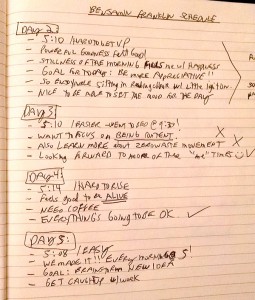 BENJAMIN FRANKLIN SCHEDULE
DAY 2
- 5:10 / HARD TO GET UP
- POWERFUL GOODNESS FEELS GOOD!
- STILLNESS OF THE MORNING FILLS ME w/ HAPPINESS
- GOAL FOR TODAY: BE MORE APPRECIATIVE!!
- SO ENJOYABLE SITTING IN READING CHAIR w/ LITTLE
- NICE TO BE ABLE TO SET THE MOOD FOR THE DAY
DAY 3
- 5:10 / EASIER - WENT TO BED @ 9:30!
- WANT TO FOCUS ON BEING CONTENT! X
- ALSO LEARN MORE ABOUT ZEROWASTE MOVEMENT X
- LOOKING FORWARD TO MORE OF THESE "ME" TIMES
DAY 4
- 5:14 / HARD TO RISE
- FEELS GOOD TO BE ALIVE
- NEED COFFEE
- EVERYTHING'S GOING TO BE OK
DAY 5:
- 5:08 / EASY
- WE MADE IT!! EVERY MORNING 5!
- GOAL: BRAINSTORM NEW IDEA
- GET CAUGHT UP w/ WORK